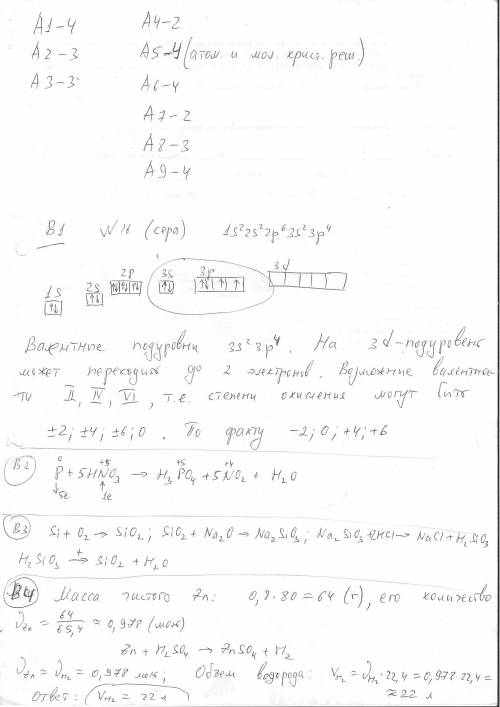 A1-4 A4-2
A2-3 A5-4 (атом. и мол. крист. реш.)
A3-3 A6-4
A7-2
A8-3
A9-4
B1 N 16 (сера) 1s²2s²2p⁶3s²3p⁴
1s 2s 2p 3s 3p 3d
↑↓ ↑↓ ↑↓ ↑↓ ↑↓ ↑↓ ↑↓ ↑ ↑
Валентные подуровни 3s²3p⁴. На 3d-подуровень
может переходить до 2 электронов. Возможные валентнос-
ти II, IV, VI, т.е. степени окисления могут быть
±2; ±4; ±6; 0. По факту -2; 0; +4; +6
B2 P⁰ + 5HN⁺⁵O₃ → H₃P⁺⁵O₄ + 5N⁺⁴O₂ + H₂O
↓5e ↑1e
B3 Si + O₂ → SiO₂; SiO₂ + Na₂O → Na₂SiO₃; Na₂SiO₃ + 2HCl → NaCl + H₂SiO₃
H₂SiO₃ →(t) SiO₂ + H₂O
B4 Масса чистого Zn: 0,8·80 = 64 (г), его количество
νZn = 64/65,4 = 0,978 (моль)
Zn + H₂SO₄ → ZnSO₄ + H₂
νZn = νH₂ = 0,978 моль; Объем водорода: VH₂ = νH₂·22,4 = 0,978·22,4 =
≈ 22 л
Ответ: VH₂ = 22 л